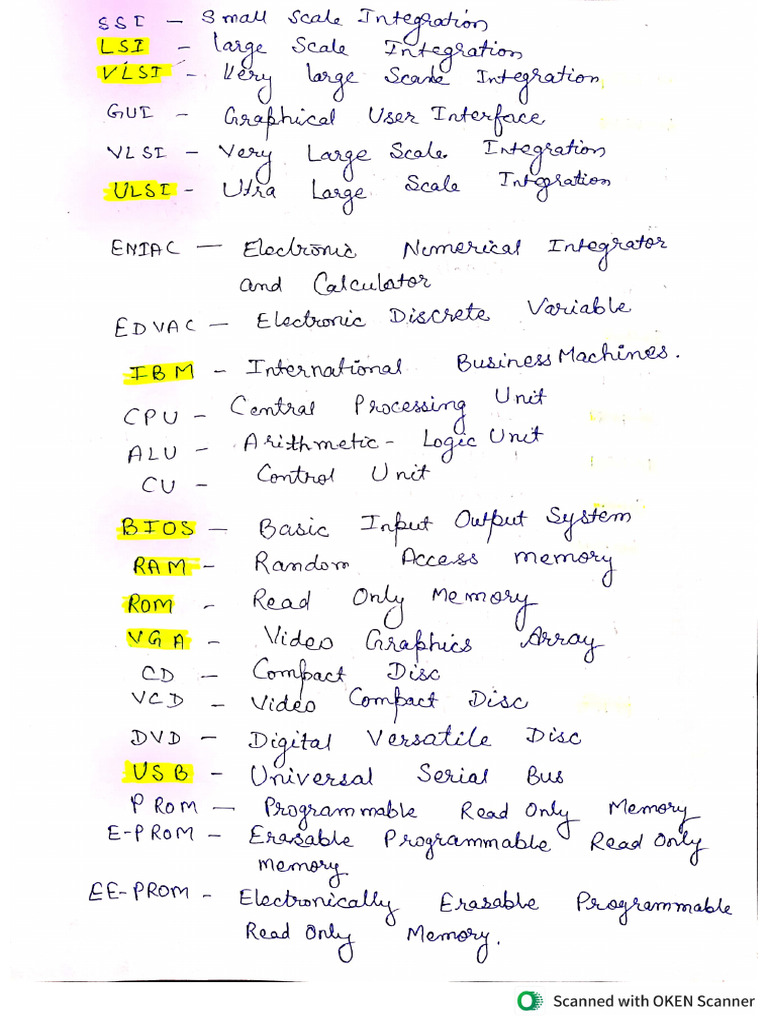 SSI - Small Scale Integration
LSI - large Scale Integration
VLSI - Very large Scale Integration
GUI - Graphical User Interface
VLSI - Very Large Scale. Integration
ULSI - Utra Large Scale Intgration
ENIAC - Electronic Numerical Integrator
and Calculator
EDVAC - Electronic Discrete Variable
IBM - International Business Machines.
CPU - Central Processing Unit
ALU - Arithmetic - Logic Unit
CU - Control Unit
BIOS - Basic Input Output System
RAM - Random Access memory
ROM - Read Only Memory
VGA - Video Graphics Array
CD - Compact Disc
VCD - Video Compact Disc
DVD - Digital Versatile Disc
USB - Universal Serial Bus
PROM - Programmable Read Only Memory
E-PROM - Erasable Programmable Read Only
memory
EE-PROM - Electronically Erasable Programmable
Read Only Memory.
Scanned with OKEN Scanner